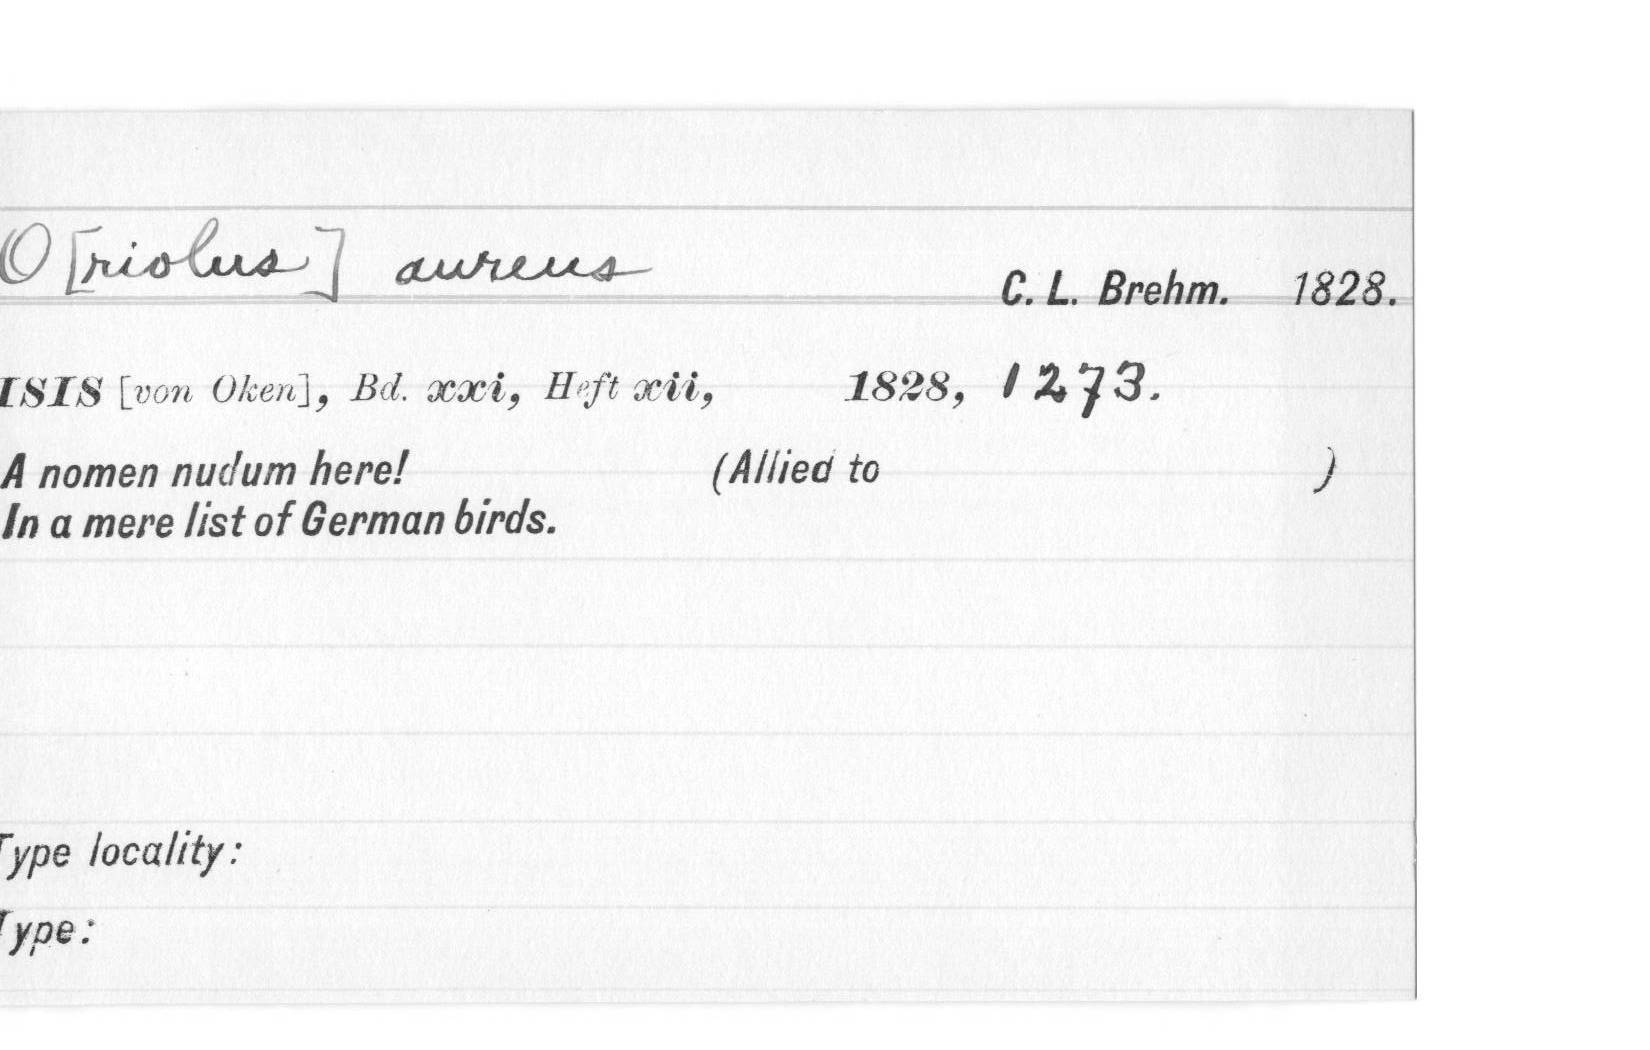 O[riolus] aureus C. L. Brehm. 1828.
ISIS [von Oken], Bd. xxi, Heft xii, 1828, 1273.
A nomen nudum here! (Allied to )
In a mere list of German birds.
Type locality:
Type: